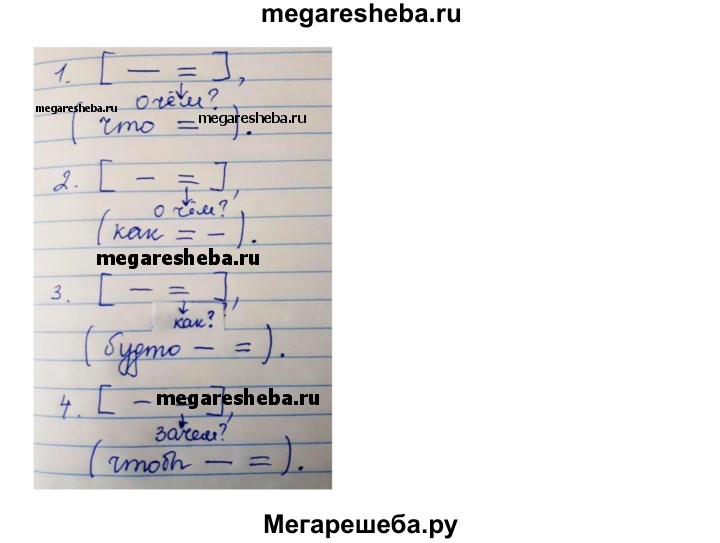 megaresheba.ru
1. [ — = ],
о чём?
megaresheba.ru
( что = ).
megaresheba.ru
2. [ - = ],
о чём?
(как = - ).
megaresheba.ru
3. [ - = ],
как?
( будто - = ).
4. [ - = ],
megaresheba.ru
зачем?
( чтобы - = ).
Мегарешеба.ру